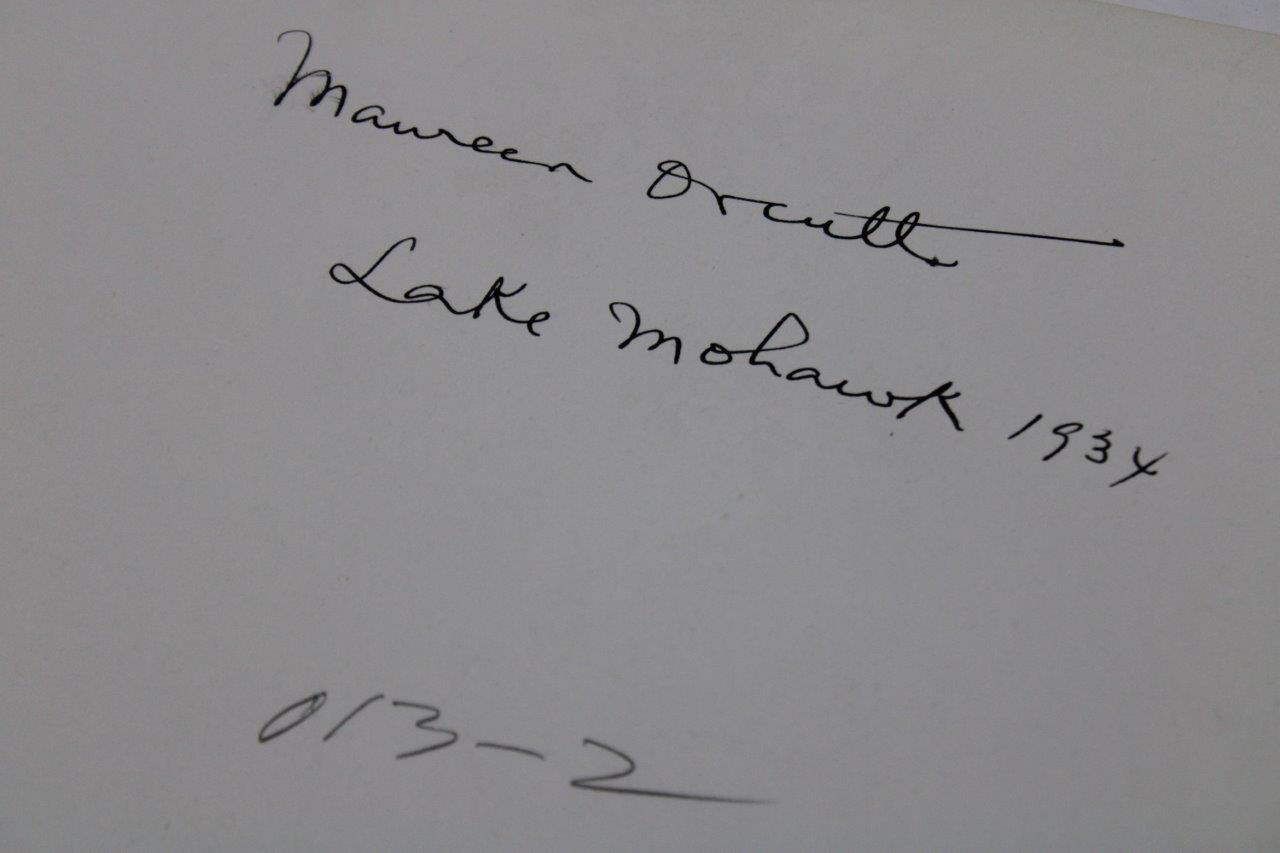 Maureen Orcutt
Lake Mohawk 1934
013-2